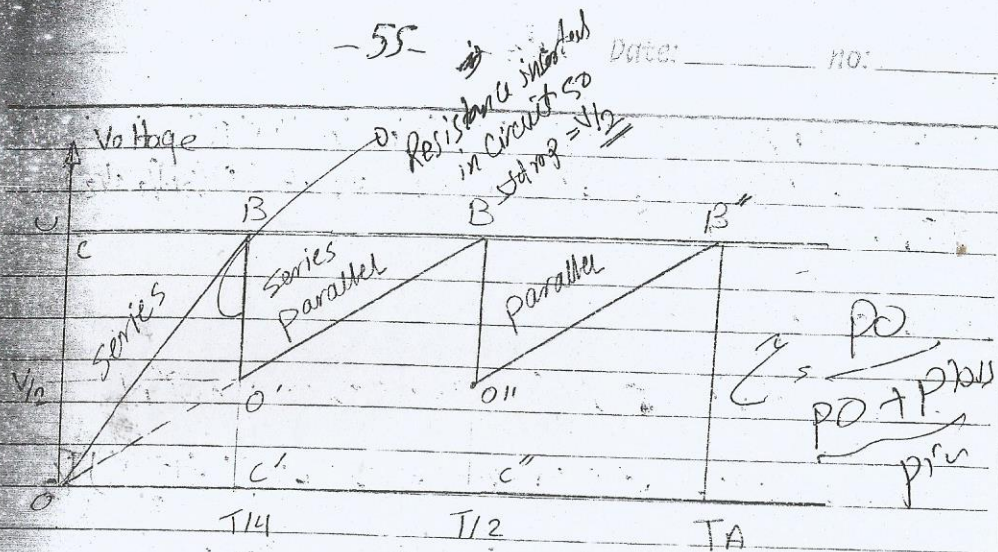 -55-
Date: no:
Resistance inserted
in circuit so
Vdrop = V/2
Voltage
D
B
B
B"
V
C
series
series
parallel
parallel
V/2
O'
O"
η = PO
PO + Ploss
pin
O
C'
C"
T/4
T/2
TA